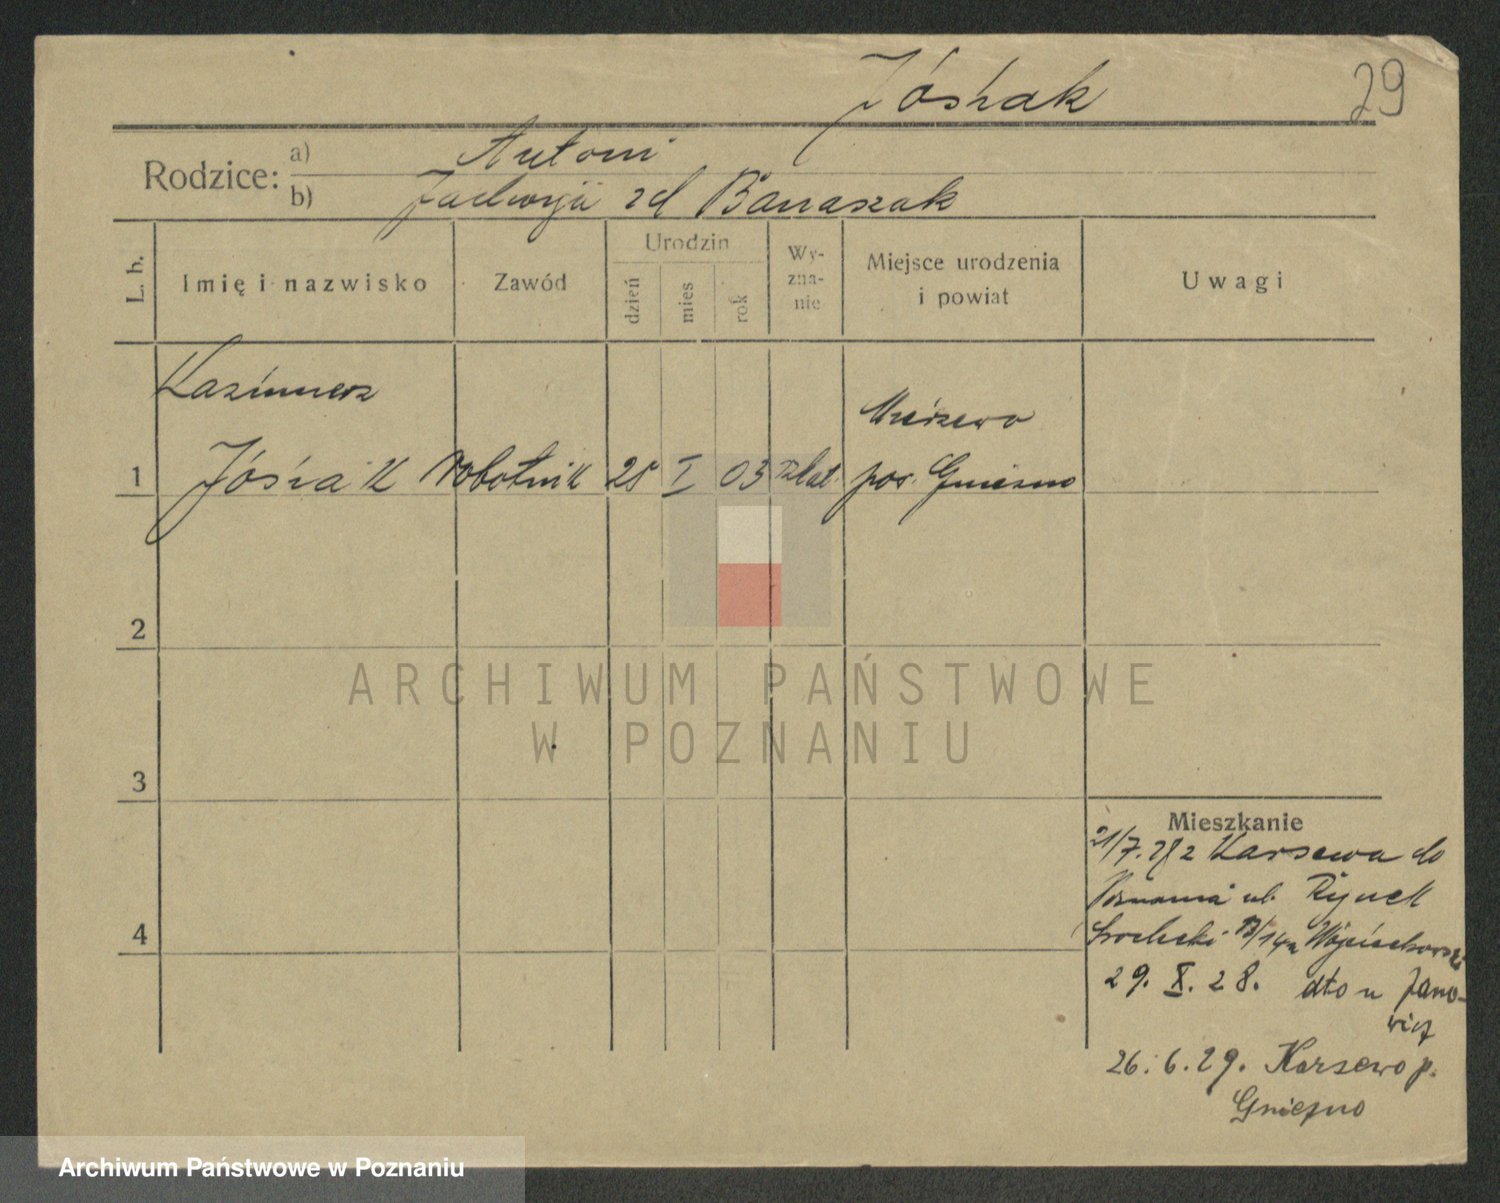 Jóśiak
29
Rodzice:
a) Antoni
b) Jadwiga zd Banaszak
L. b.
Imię i nazwisko
Zawód
Urodzin
dzień
mies
rok
Wy-
zna-
nie
Miejsce urodzenia
i powiat
Uwagi
Kazimierz
1 Jóśiak Robotnik 25 I 03 rzkat. pow. Gniezno
2
3
4
ARCHIWUM PAŃSTWOWE
W POZNANIU
Mieszkanie
21/7.28 z Karsewa do
Poznania ul. Rynek
Środecki 13/14 u Wojciechowski
29. X. 28. dto u Jano-
wicz
26.6.29. Karsewo p.
Gniezno
Archiwum Państwowe w Poznaniu